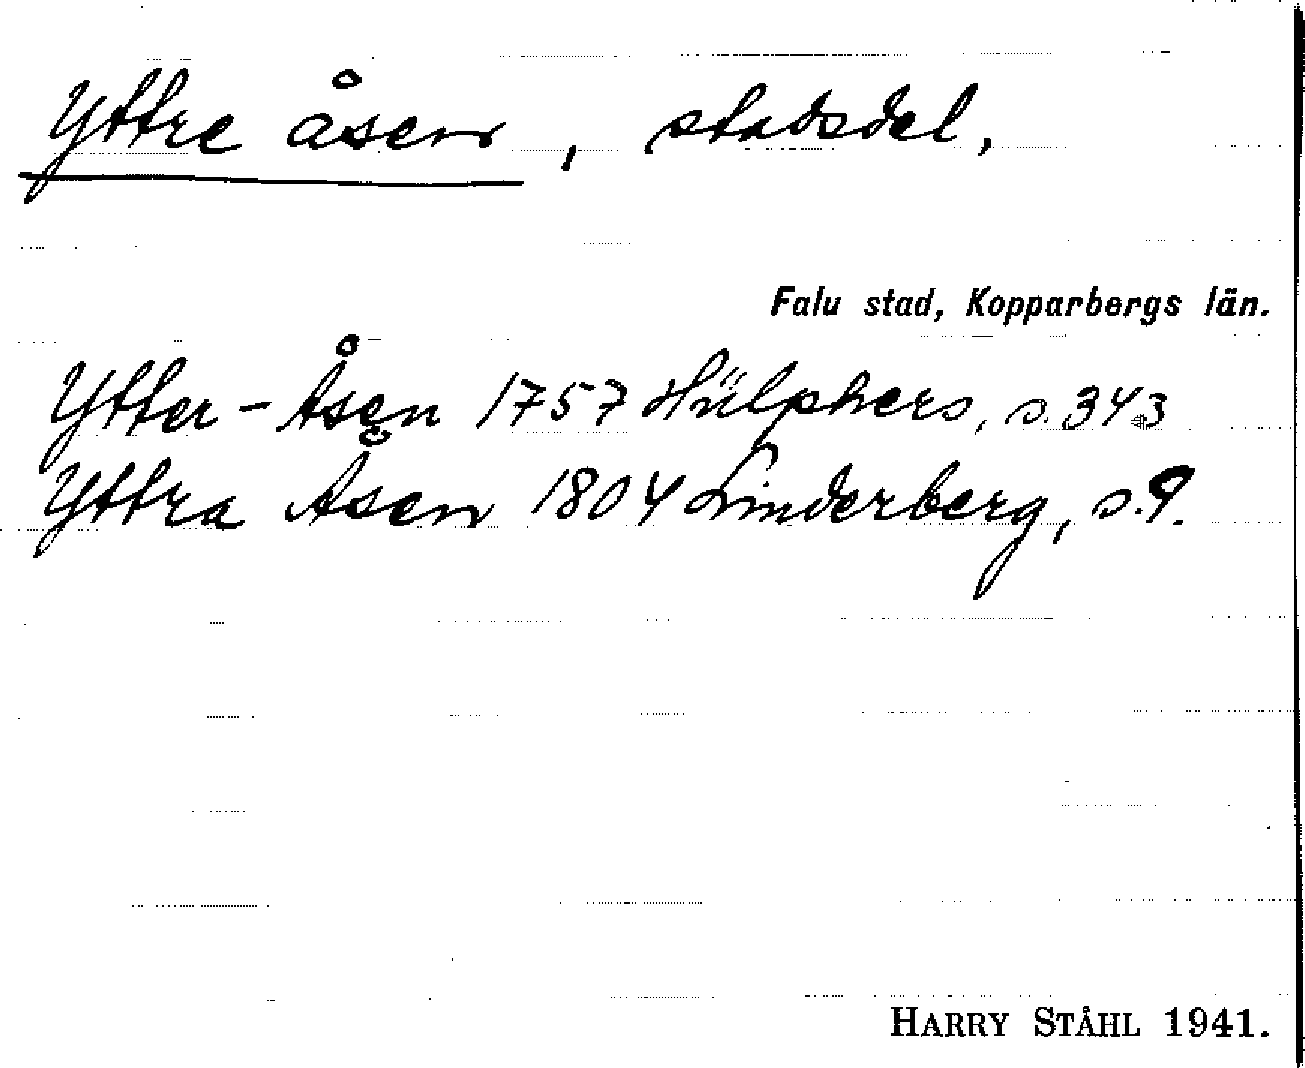 Yttre åsen, stadsdel,
Falu stad, Kopparbergs län.
Ytter-Åsen 1757 Hülphers, s. 343
Yttra Åsen 1804 Linderberg, s. 9.
HARRY STÅHL 1941.